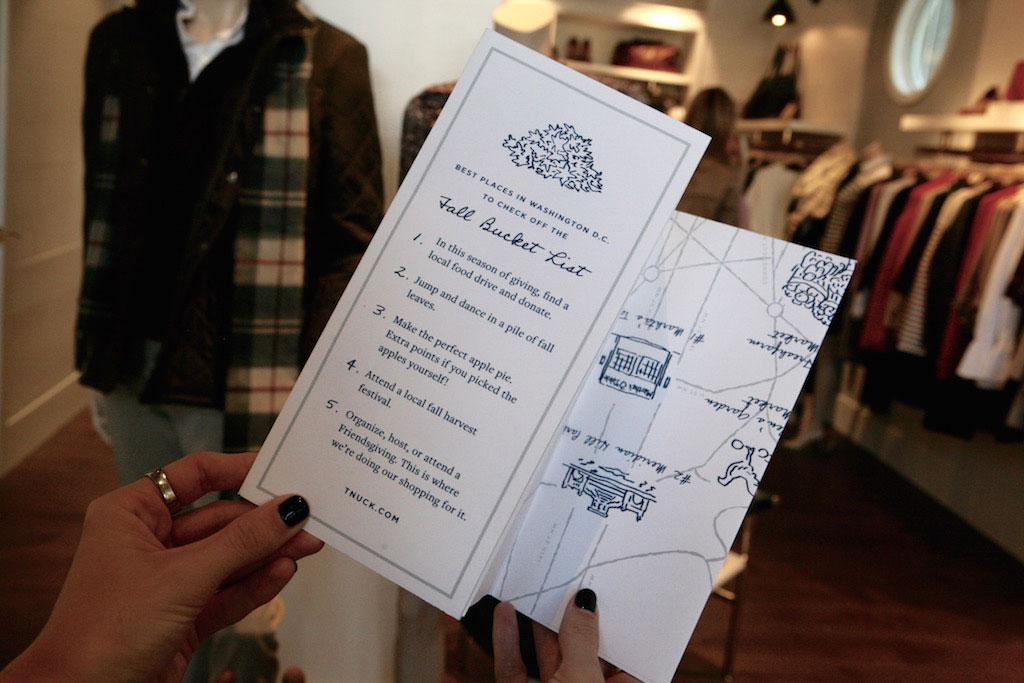 BEST PLACES IN WASHINGTON D.C.
TO CHECK OFF THE
Fall Bucket List
1. In this season of giving, find a
local food drive and donate.
2. Jump and dance in a pile of fall
leaves.
3. Make the perfect apple pie.
Extra points if you picked the
apples yourself!
4. Attend a local fall harvest
festival.
5. Organize, host, or attend a
Friendsgiving. This is where
we're doing our shopping for it.
TNUCK.COM
Freshfarm
Market
Garden
Market
# Meridian Hill